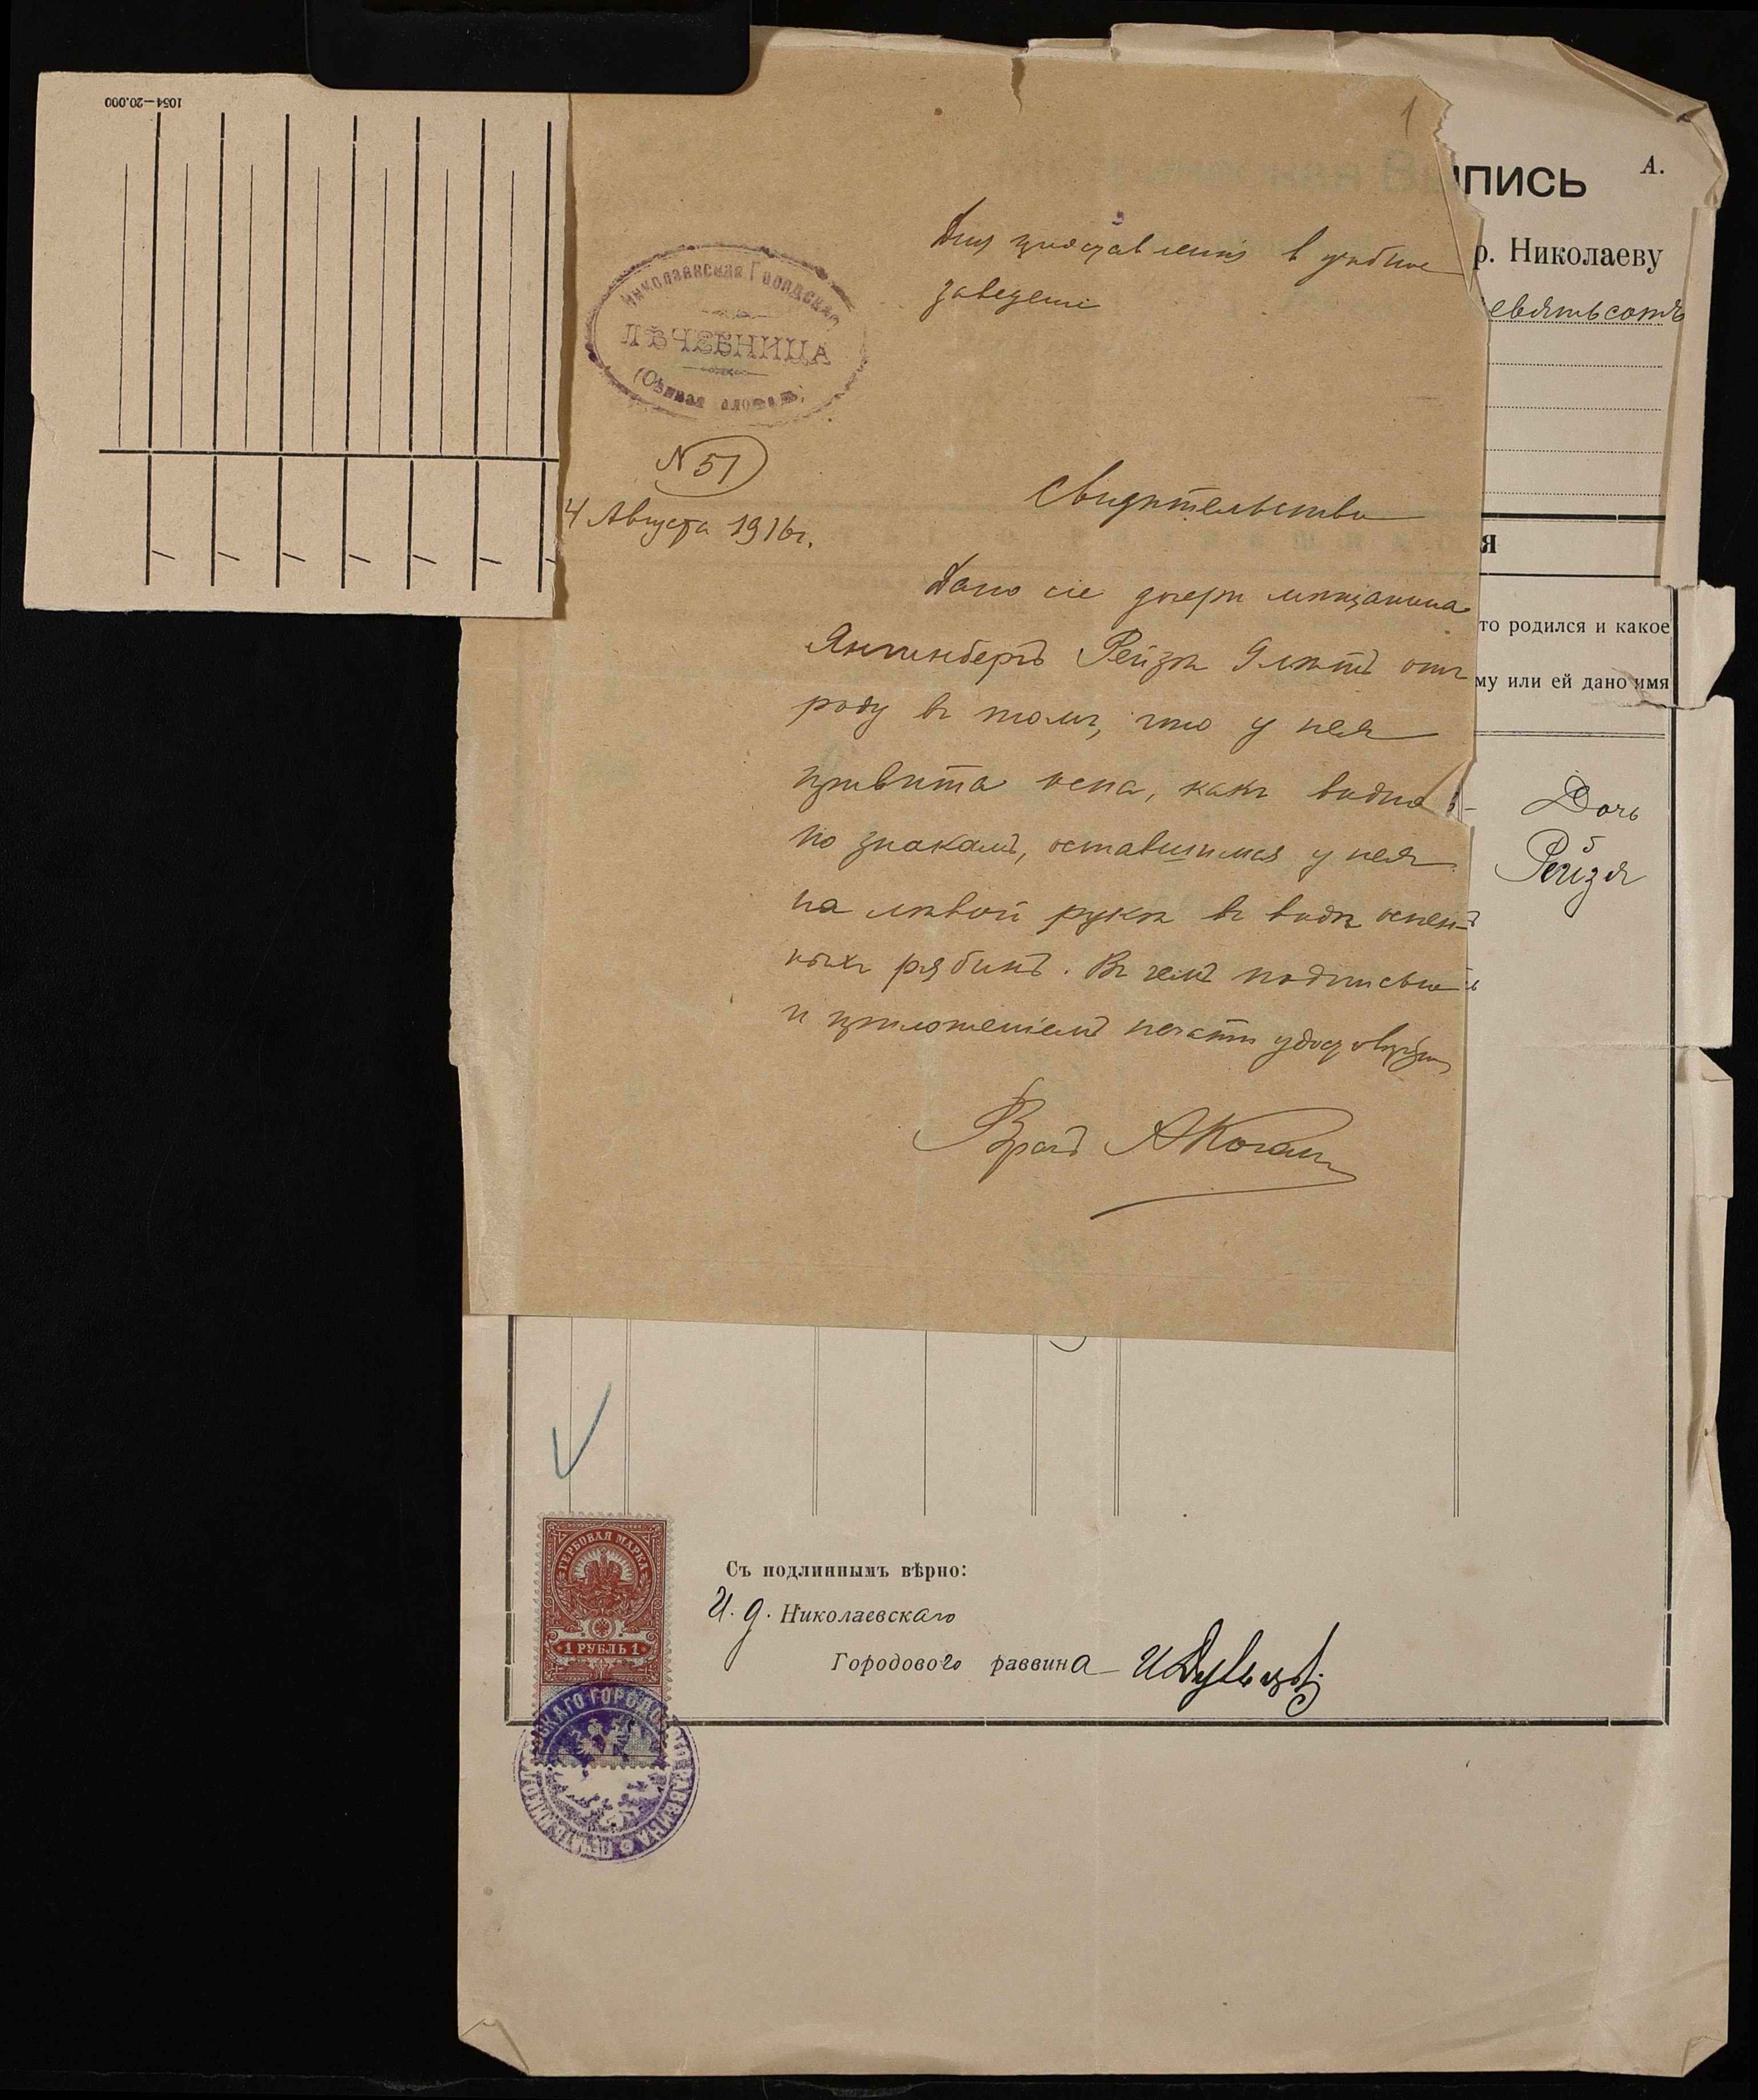 1054—20.000
1
А.
пись
р. Николаеву
евятьсотъ
Для представленія в учебное
заведеніе
Николаевская Городская
ЛѢЧЕБНИЦА
(Сѣнная площадь)
N 51
4 Августа 1916 г.
Свидѣтельство
я
Дано сіе дочери мѣщанина
Рейзѣ 9 лѣтъ отъ
роду въ томъ, что у нея
привита оспа, какъ видно
по знакамъ, оставшимся у нея
на лѣвой рукѣ въ видѣ оспен-
ныхъ рябинъ. Въ чемъ подписью
и приложеніемъ печати удостовѣряю
Врачъ А Коганъ
то родился и какое
му или ей дано имя
Дочь
Рейзя
ГЕРБОВАЯ МАРКА
1 РУБЛЬ 1
Съ подлиннымъ вѣрно:
И. д. Николаевскаго
Городового раввина